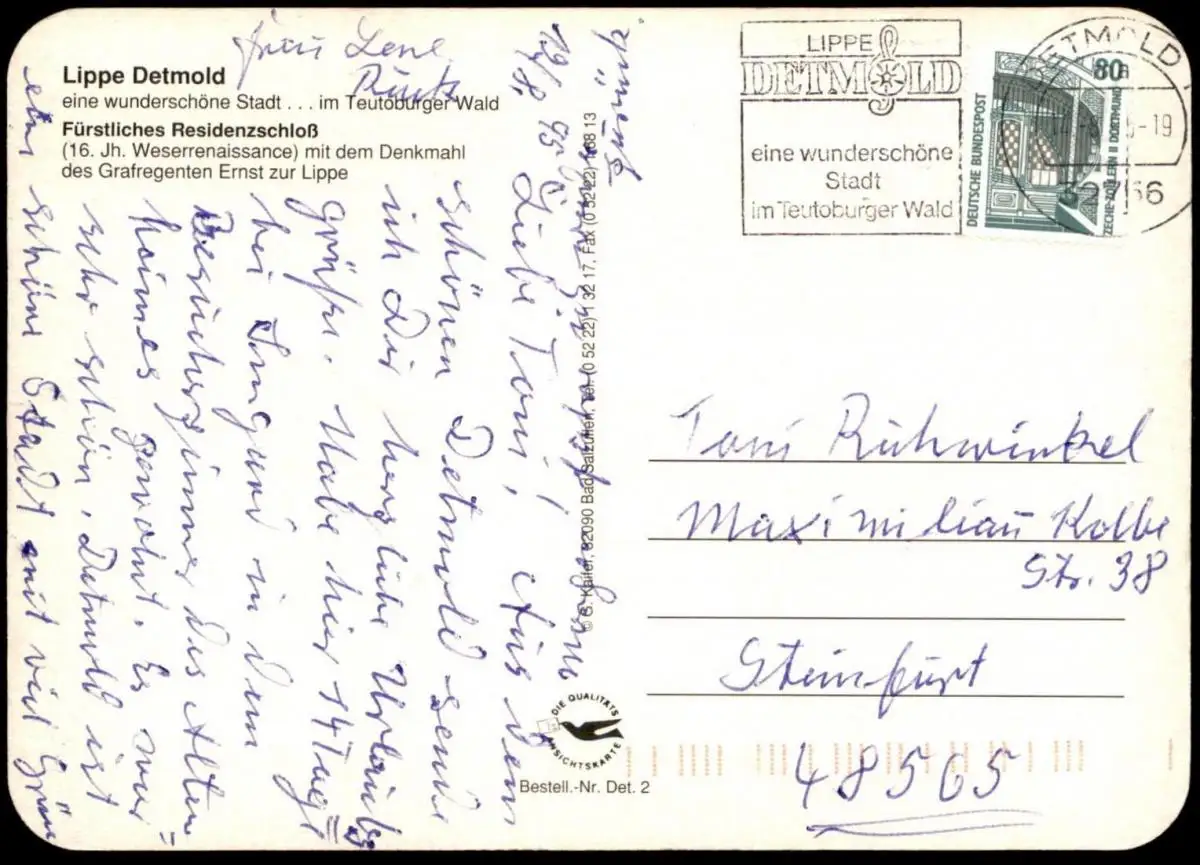 Lippe Detmold
eine wunderschöne Stadt . . . im Teutoburger Wald
Fürstliches Residenzschloß
(16. Jh. Weserrenaissance) mit dem Denkmahl
des Grafregenten Ernst zur Lippe
Frau Lene
LIPPE
DETMOLD
eine wunderschöne
Stadt
im Teutoburger Wald
DETMOLD
-19
32756
80
DEUTSCHE BUNDESPOST
ZECHE ZOLLERN II DORTMUND
Liebe Toni! Aus dem
schönen Detmold sende
ich Dir herzliche Urlaubs
grüße. Habe hier 14 Tage
bei Irmgard in dem
Besucherzimmer des Alten
heimes gewohnt. Es war
sehr schön. Detmold ist
eine schöne Stadt mit viel Grün
Toni Ruhwinkel
Maximilian Kolbe
Str. 38
Steinfurt
48565
© G. Käller, 32090 Bad Salzuflen, Tel. (0 52 22) 1 32 17, Fax (0 52 22) 1 68 13
DIE QUALITÄTS
ANSICHTSKARTE
Bestell.-Nr. Det. 2